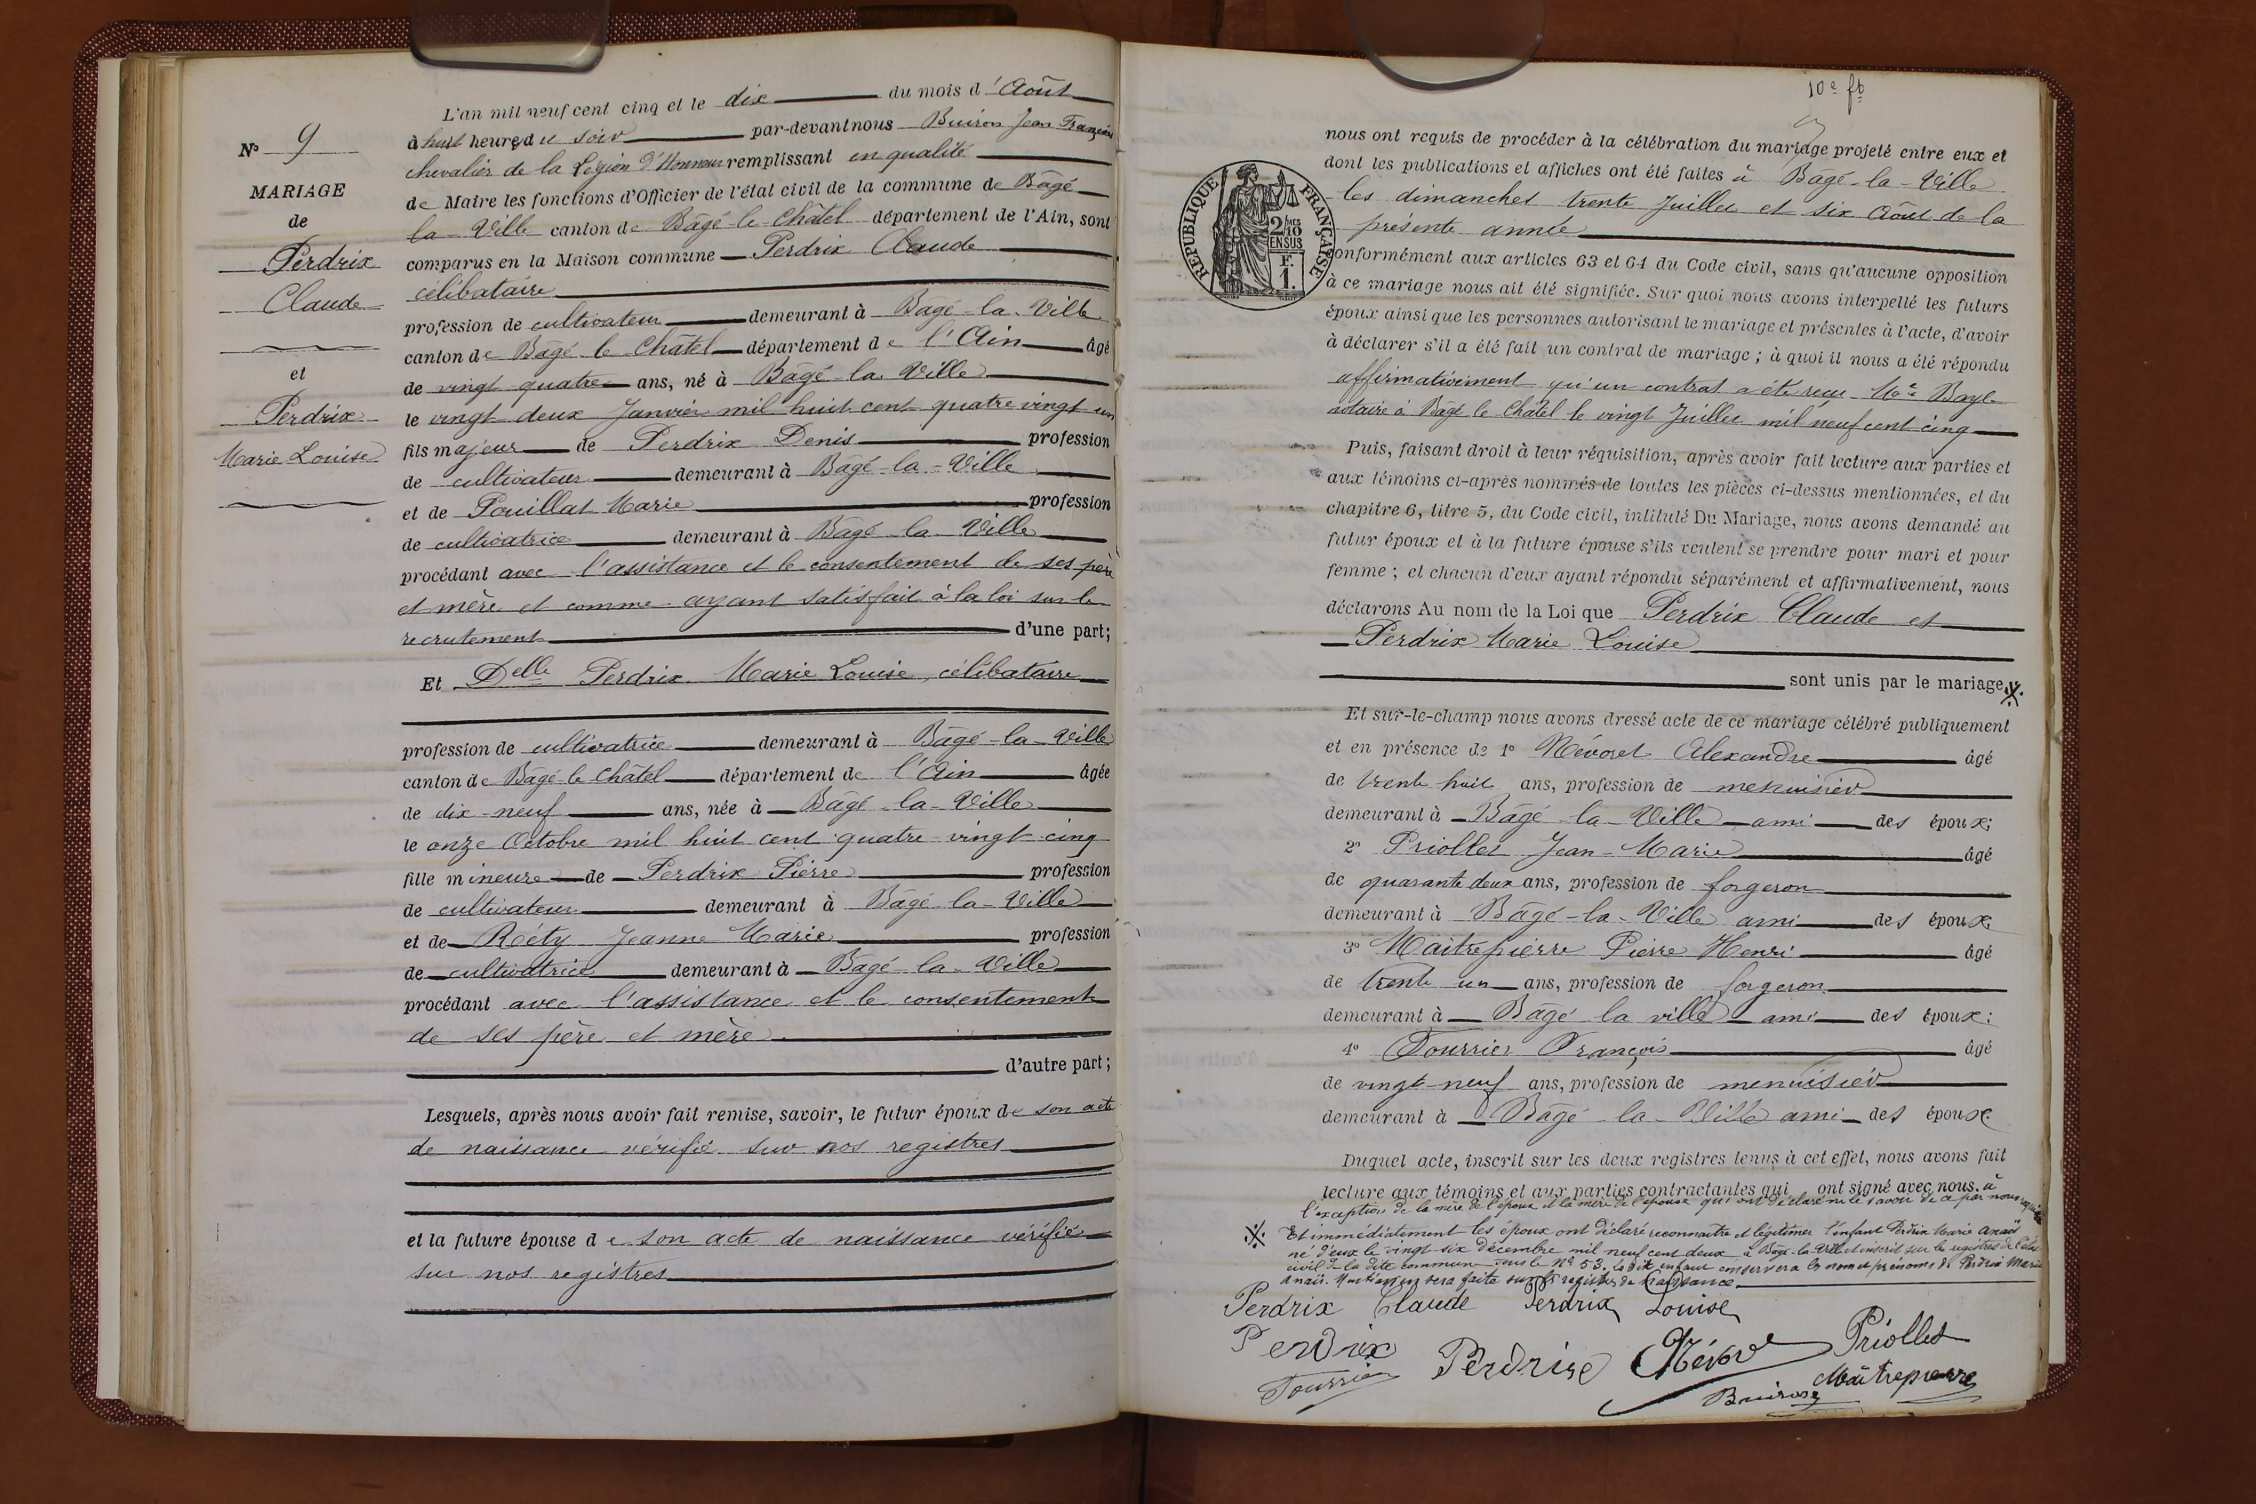 N° 9
MARIAGE
de
Perdrix
Claude
et
Perdrix
Marie Louise
L'an mil neuf cent cinq et le dix du mois d'Août
à huit heures du soir par-devant nous Buiron Jean François
chevalier de la Légion d'Honneur remplissant en qualité
de Maire les fonctions d'Officier de l'état civil de la commune de Bâgé
la-Ville canton de Bâgé-le-Châtel département de l'Ain, sont
comparus en la Maison commune Perdrix Claude
célibataire
profession de cultivateur demeurant à Bagé-la-Ville
canton de Bâgé le Châtel département de l'Ain âgé
de vingt quatre ans, né à Bâgé-la-Ville
le vingt deux Janvier mil huit cent quatre vingt un
fils majeur de Perdrix Denis profession
de cultivateur demeurant à Bâgé-la-Ville
et de Pouillat Marie profession
de cultivatrice demeurant à Bâgé-la-Ville
procédant avec l'assistance et le consentement de ses père
et mère et comme ayant satisfait à la loi sur le
recrutement d'une part;
Et Delle Perdrix Marie Louise, célibataire
profession de cultivatrice demeurant à Bâgé-la-Ville
canton de Bâgé-le-Châtel département de l'Ain âgée
de dix-neuf ans, née à Bâgé-la-Ville
le onze Octobre mil huit cent quatre-vingt-cinq
fille mineure de Perdrix Pierre profession
de cultivateur demeurant à Bâgé-la-Ville
et de Réty Jeanne Marie profession
de cultivatrice demeurant à Bâgé-la-Ville
procédant avec l'assistance et le consentement
de ses père et mère
d'autre part;
Lesquels, après nous avoir fait remise, savoir, le futur époux de son acte
de naissance vérifié sur nos registres
et la future épouse de son acte de naissance vérifié
sur nos registres
10e ft
RÉPUBLIQUE FRANÇAISE
2/10
EN SUS
F.
1.
nous ont requis de procéder à la célébration du mariage projeté entre eux et
dont les publications et affiches ont été faites à Bâgé-la-Ville
les dimanches trente Juillet et six Août de la
présente année
conformément aux articles 63 et 64 du Code civil, sans qu'aucune opposition
à ce mariage nous ait été signifiée. Sur quoi nous avons interpellé les futurs
époux ainsi que les personnes autorisant le mariage et présentes à l'acte, d'avoir
à déclarer s'il a été fait un contrat de mariage; à quoi il nous a été répondu
affirmativement qu'un contrat a été reçu Me Bayle
notaire à Bâgé le Châtel le vingt Juillet mil neuf cent cinq
Puis, faisant droit à leur réquisition, après avoir fait lecture aux parties et
aux témoins ci-après nommés de toutes les pièces ci-dessus mentionnées, et du
chapitre 6, titre 5, du Code civil, intitulé Du Mariage, nous avons demandé au
futur époux et à la future épouse s'ils veulent se prendre pour mari et pour
femme; et chacun d'eux ayant répondu séparément et affirmativement, nous
déclarons Au nom de la Loi que Perdrix Claude et
Perdrix Marie Louise
sont unis par le mariage ※
Et sur-le-champ nous avons dressé acte de ce mariage célébré publiquement
et en présence de 1° Névoret Alexandre âgé
de trente huit ans, profession de menuisier
demeurant à Bâgé-la-Ville ami des époux;
2° Priollet Jean-Marie âgé
de quarante deux ans, profession de forgeron
demeurant à Bâgé-la-Ville ami des époux;
3° Maitrepierre Pierre Henri âgé
de trente un ans, profession de forgeron
demeurant à Bâgé la ville ami des époux;
4° Fourrier François âgé
de vingt-neuf ans, profession de menuisier
demeurant à Bâgé-la-Ville ami des époux
Duquel acte, inscrit sur les deux registres tenus à cet effet, nous avons fait
lecture aux témoins et aux parties contractantes qui ont signé avec nous. à
l'exception de la mère de l'époux et la mère de l'épouse qui ont déclaré ne le savoir de ce par nous requis
※ Et immédiatement les époux ont déclaré reconnaître et légitimer l'enfant Perdrix Marie Anaïs
né d'eux le vingt-six décembre mil neuf cent deux à Bâgé-la-Ville et inscrit sur les registres de l'état
civil de la dite commune sous le N° 53. La dite enfant conservera les nom et prénoms de Perdrix Marie
Anaïs. Mention en sera faite sur les registres de naissance.
Perdrix Claude Perdrix Louise
Perdrix Perdrix Névor Priollet
Fourrier Buiron Maitrepierre